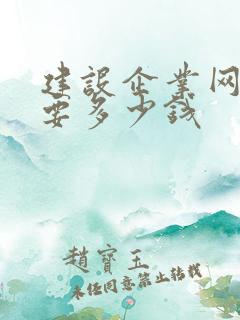 建設企業网
要多少钱
趙寶玉
未任同意禁止转载